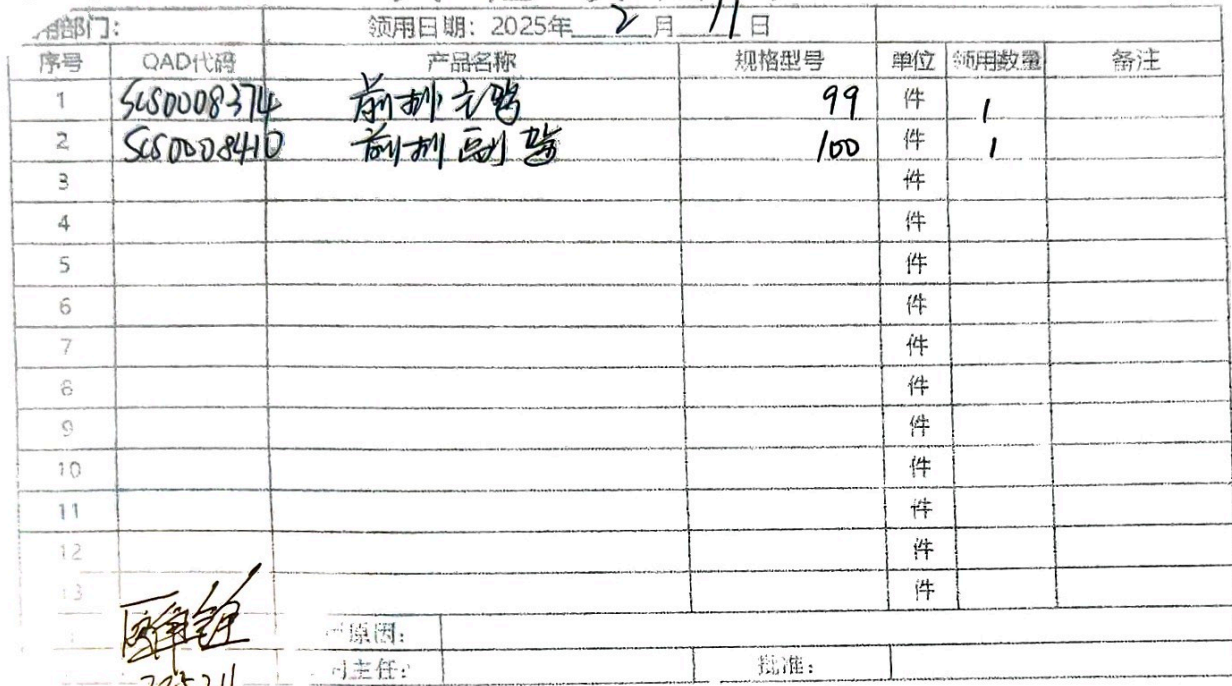 用部门： 领用日期：2025年 2 月 11 日
序号 QAD代码 产品名称 规格型号 单位 领用数量 备注
1 SCS0008374 前排主驾 99 件 1
2 SCS0008410 前排副驾 100 件 1
3 件
4 件
5 件
6 件
7 件
8 件
9 件
10 件
11 件
12 件
13 件
原因：
主任： 批准：